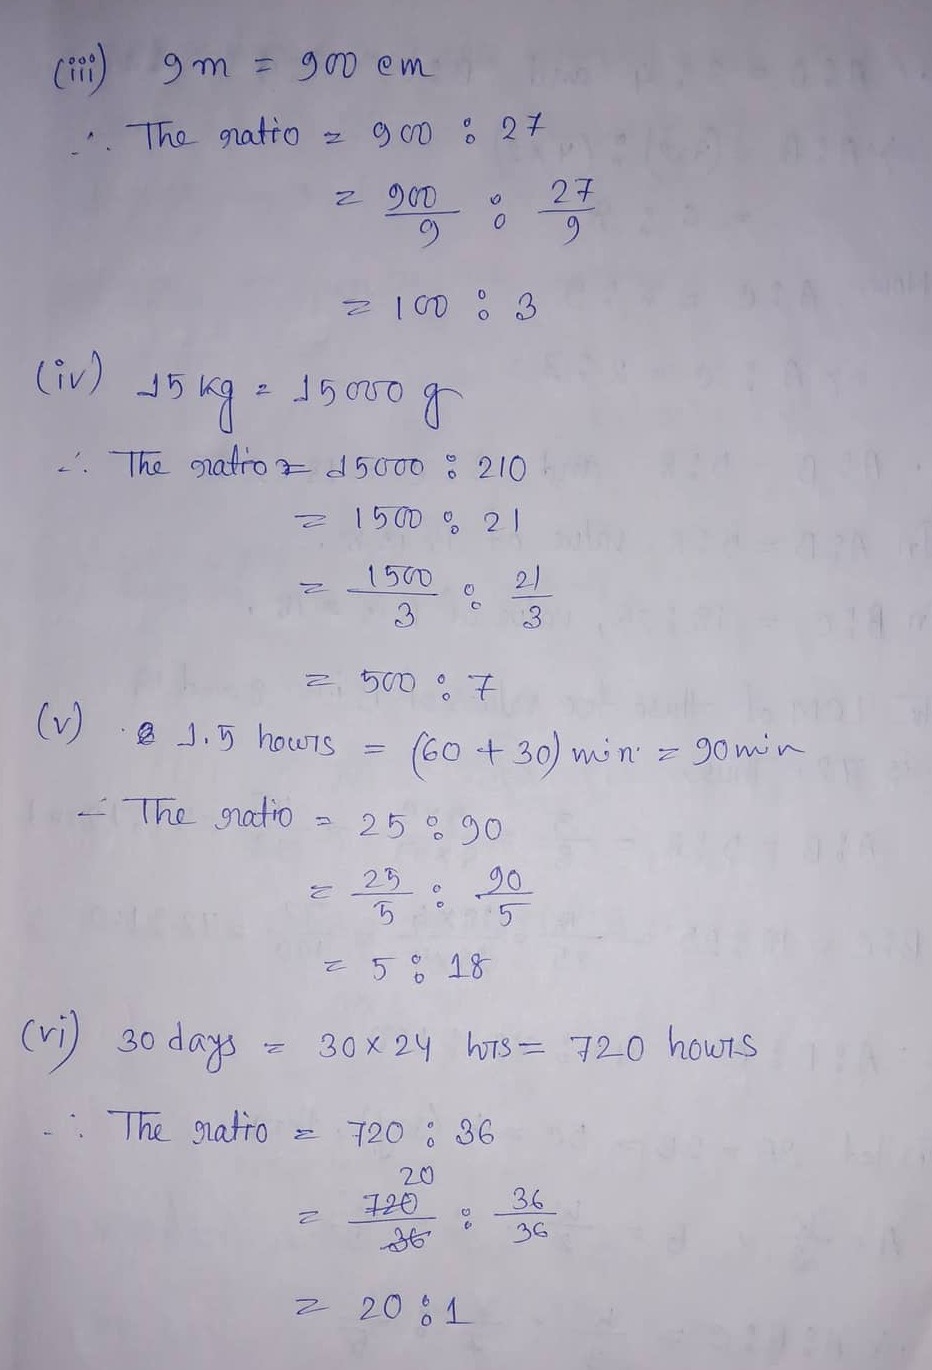 (iii) 9m = 900 cm
∴ The ratio = 900 : 27
= 900/9 : 27/9
= 100 : 3
(iv) 15 kg = 15000 g
∴ The ratio = 15000 : 210
= 1500 : 21
= 1500/3 : 21/3
= 500 : 7
(v) 1.5 hours = (60 + 30) min = 90 min
∴ The ratio = 25 : 90
= 25/5 : 90/5
= 5 : 18
(vi) 30 days = 30 x 24 hrs = 720 hours
∴ The ratio = 720 : 36
20
= 720/36 : 36/36
= 20 : 1